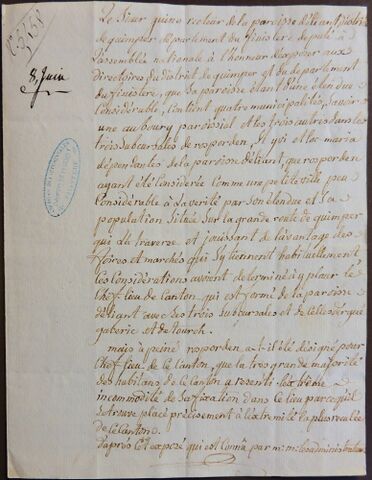 8, Juin
Le Sieur guino recteur de la paroisse d'Elliant district
de quimper departement du finistere deputé à
L'assemblée nationale à l'honneur d'exposer aux
Directoires du District de quimper et du departement
du finistere, que sa paroisse étant d'une étendue
Considérable, Contient quatre municipalités, Savoir
une au bourg paroissial et les trois autres dans les
trois Subcursales de rosporden, St yvi et locmaria
dépendantes de la paroisse d'Eliant, que rosporden
ayant été Considérée Comme une petite ville peu
Considérable à La verité par son étendue et Sa
population Située Sur la grande route de quimper
qui La traverse et jouissant de l'avantage des
foires et marchés qui S'y tiennent habituellement,
ces Considérations avoient determiné à y placer le
Chef lieu de Canton qui est formé de la paroisse
d'Eligant avec Ses trois Subcursales et de Celles d'ergue
gaberic et de tourch.
mais à peine rosporden a-t-il été designé pour
Chef lieu de Canton, que la tres grande majorité
des habitans de Ce Canton a resenti l'extrême
incommodité de Sa fixation dans Ce lieu parcequ'il
Se trouve placé précisement à l'extremité la plus reculée
de Ce Canton.
d'après Cet exposé qui est Connu par m: m: les administrateurs